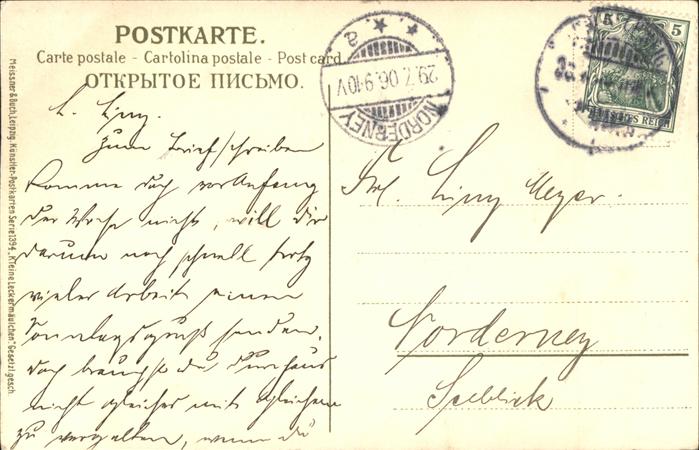 POSTKARTE.
Carte postale - Cartolina postale - Post card.
ОТКРЫТОЕ ПИСЬМО.
Meissner & Buch, Leipzig. Künstler-Postkarten Serie 1394 "Kleine Leckermäulchen" Gesetzl. gesch.
NORDERNEY
29.7.06.9-10V.
* * a
5 5
DEUTSCHES REICH
L. Liny.
Zum Briefschreiben
komme doch vor Anfang
der Woche nicht, will dir
darum noch schnell trotz
vieler Arbeit einen
Sonntagsgruß senden,
doch brauchst du durchaus
nicht gleiches mit gleichem
zu vergelten, wenn du
Frl. Liny Meyer.
Norderney
Seeblick